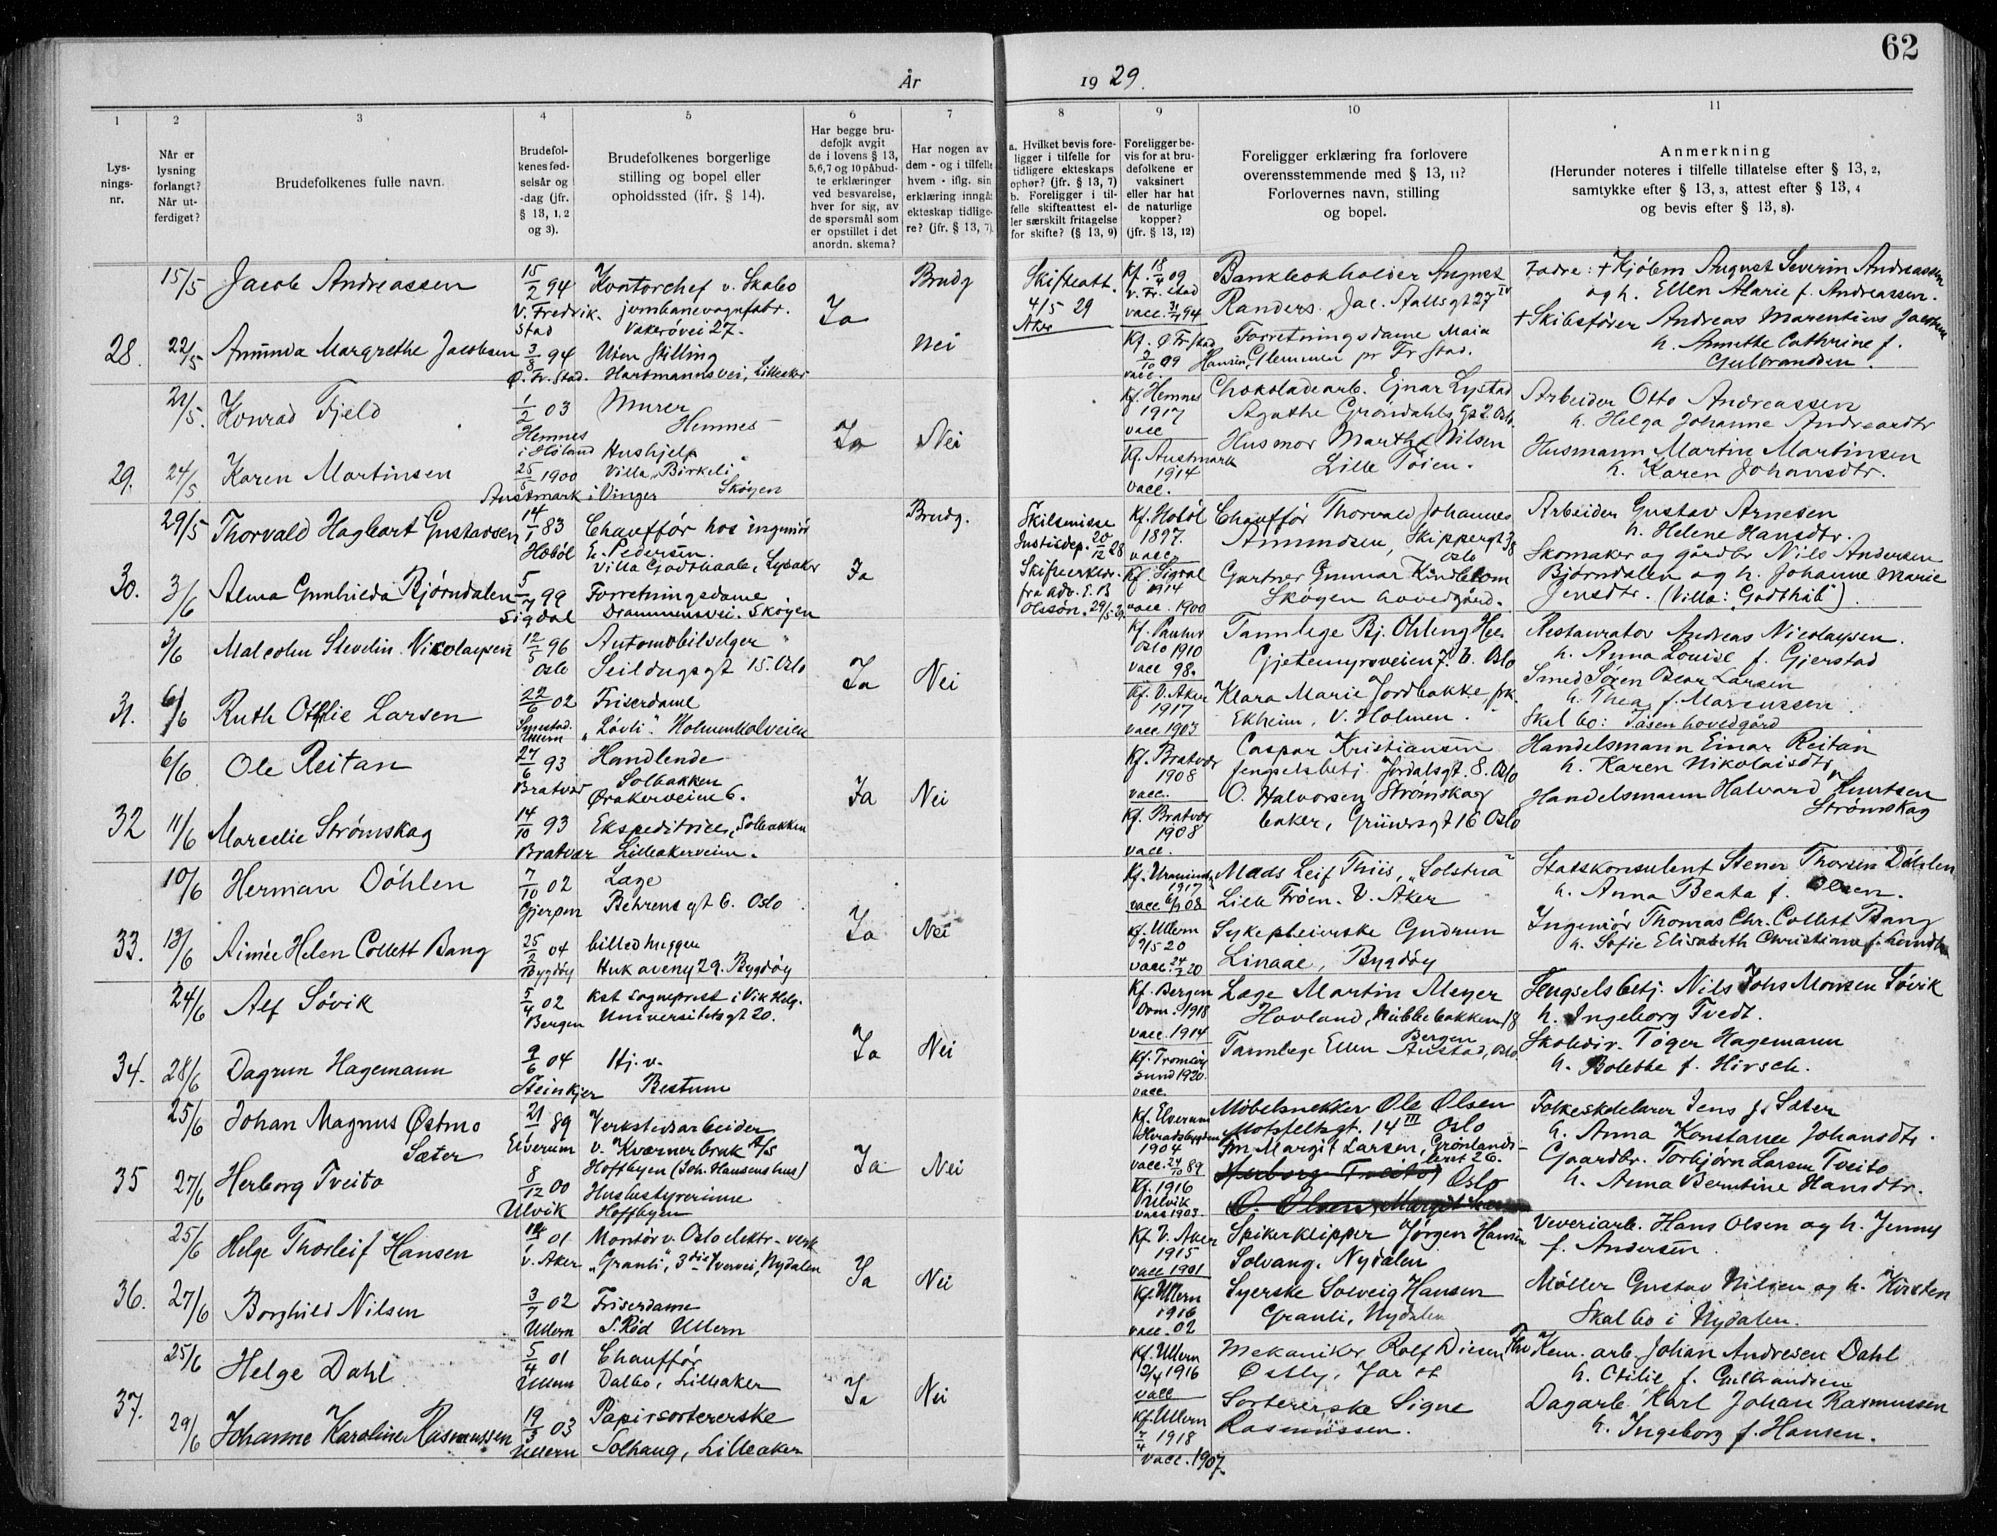 62
År 1929.
1 2 3 4 5 6 7 8 9 10 11
Lysningsnr.
Når er lysning forlangt? Når utferdiget?
Brudefolkenes fulle navn.
Brudefolkenes fødselsår og -dag (jfr. § 13, 1, 2 og 3).
Brudefolkenes borgerlige stilling og bopel eller opholdssted (jfr. § 14).
Har begge brudefolk avgit de i lovens § 13, 5,6,7 og 10 påbudte erklæringer ved besvarelse, hver for sig, av de spørsmål som er opstillet i det anordn. skema?
Har nogen av dem - og i tilfelle hvem - iflg. sin erklæring inngåt ekteskap tidligere? (jfr. § 13, 7).
a. Hvilket bevis foreligger i tilfelle for tidligere ekteskaps ophør? (jfr. § 13, 7) b. Foreligger i tilfelle skifteattest eller særskilt fritagelse for skifte? (§ 13, 9)
Foreligger bevis for at brudefolkene er vaksinert eller har hat de naturlige kopper? (jfr. § 13, 12)
Foreligger erklæring fra forlovere overensstemmende med § 13, 11? Forlovernes navn, stilling og bopel.
Anmerkning (Herunder noteres i tilfelle tillatelse efter § 13, 2, samtykke efter § 13, 3, attest efter § 13, 4 og bevis efter § 13, 8).
28.
15/5 Jacob Andreassen
15/2 94 V. Fredrikstad
Kontorchef v. Skabo jernbanevognfabr. Vakerövei 27.
Ja
Brudg
Skifteatt. 4/5 29 Aker
Kf. 18/4 09 v. Fr.stad vacc. 94
Bankbokholder August Randers. Jac. Aallsgt 27 IV
Fadre: + Kjøbm August Severin Andreassen og h. Ellen Marie f. Andreassen.
22/5 Amunda Margrethe Jacobsen
3/8 94 Ø. Fr. stad.
Uten stilling Hartmannsvei, Lilleaker
Nei
Kf. Ø Fr stad 2/10 09 vacc.
Forretningsdame Maia Hansen, Glemmen pr Fr stad.
+ Skibsfører Andreas Marentius Jacobsen h. Annette Cathrine f. Gulbrandsen.
29.
21/5. Konrad Fjeld
1/2 03 Hemnes i Høland
Murer Hemnes
Ja
Nei
Kf. Hemnes 1917 vacc
Chokoladearb. Ejnar Lystad Agathe Grøndahls Gt 2. Oslo.
Arbeider Otto Andreassen h. Helga Johanne Andreasdtr
24/5. Karen Martinsen
25/5 1900 Austmark i Vinger
Hushjelp Villa Birkeli Skøyen
Kf. Austmark 1914 vacc.
Husmor Martha Nilsen Lille Tøien.
Husmann Martin Martinsen h. Karen Johansdtr.
30.
29/5 Thorvald Hagbart Gustavsen
14/1 83 Hobøl
Chauffør hos ingeniør E. Pedersen. Villa Godthaab, Lysaker
Ja
Brudg.
Skilsmisse Justisdep. 20/12 28 Skifteerklær. fra adv. E. B Olsson. 29/5 29.
Kf. Hobøl 1897. vacc.
Chauffør Thorvald Johannes Amundsen, Skippergt 38 Oslo
Arbeider Gustav Arnesen h. Helene Hansdtr.
3/6 Alma Gunhilda Bjørndalen
5/7 99 Sigdal
Forretningsdame Drammensvei. Skøyen
Kf. Sigdal 1914 vacc. 1900
Gartner Gunnar Kindblom Skøyen hovedgård.
Skomaker og gårdbr Nils Andersen Bjørndalen og h. Johanne Marie Jensdtr. (Villa: Godthåb).
31.
3/6 Malcolm Stevelin Nicolaysen
12/5 96 Oslo
Automobilselger Seildugsgt 15. Oslo
Ja
Nei
Kf. Paulus Oslo 1910 vacc 98.
Tannlege Bj. Ohling Hee Gjetemyrsveien 7. b. Oslo
Restauratør Andreas Nicolaysen. h. Anna Louise f. Gjerstad
6/6 Ruth Ottilie Larsen
22/6 02 Ullern
Friserdame „Løvli". Holmenkolveien
Kf. V. Aker 1917 vacc. 1903
Klara Marie Jordbakke, frk. Ekheim, V. Holmen.
Smed Søren Bear Larsen h. Thea f. Marcussen. Skal bo: Tåsen hovedgård
32
6/6. Ole Reitan
27/6 93 Bratvær
Handlende Solbakken Ørakerveien 6.
Ja
Nei
Kf. Bratvær 1908 vacc.
Caspar Kristiansen fengselsbetj. Jordalsgt. 8. Oslo
Handelsmann Einar Reitan h. Karen Nikolaisdtr
11/6 Marcelie Strømskag
14/10 93 Bratvær
Ekspeditrice, Solbakken Lilleakerveien.
Kf. Bratvær 1908 vacc.
O. Halvorsen Strømskag baker, Grünersgt 16 Oslo
Handelsmann Halvard Knutsen Strømskag
33.
10/6 Herman Döhlen
7/10 02 Gjerpen
Læge Behrens gt 6. Oslo
Ja
Nei
Kf. Uranienb. 1917 vacc 08
Mads Leif Thiis, „Solstua" Lille Frøen. V. Aker
Statskonsulent Stener Thorsen Döhlen h. Anna Beata f. Olsen.
13/6 Aimée Helen Collett Bang
25/2 04 Bygdøy
billedhugger Huk aveny 29. Bygdøy
Kf. Ullern 9/5 20 vacc. 20
Sykepleierske Gudrun Linaae, Bygdøy
Ingeniør Thomas Chr. Collett Bang h. Sofie Elisabeth Christiane f.
34.
24/6 Alf Sövik
5/4 02 Bergen
kst sogneprest i Vik Helg. Universitetsgt 20.
Ja
Nei
Kf. Bergen Dom. 1918 vacc. 1914
Læge Martin Meyer Hovland, Nubbebakken 18 Bergen
Fengselsbetj. Nils Johs Monsen Sövik h. Ingeborg Tvedt.
28/6 Dagrun Hagemann
9/6 04 Steinkjer
Hj. v. Bestum
Kf. Tromøysund 1920. vacc.
Tannlege Ellen Austad, Oslo
Skoledir. Töger Hagemann h. Bolette f. Hirsch.
35
25/6 Johan Magnus Østmo Sæter
21/1 89 Elverum
Verkstedsarbeider v. Kværnerbruk A/S Hoffbyen (Joh. Hansens hus)
Ja
Nei
Kf. Elverum Heradsbygden 1904 vacc. 24/10 89
Møbelsnekker Ole Olsen Motzfeltsgt. 14 III Oslo
Folkeskolelærer Jens J. Sæter h. Anna Konstanse Johansdtr.
27/6 Herborg Tveito
8/12 00 Ulvik
Husbestyrerinne Hoffbyen
Kf. 1916 Ulvik vacc 1903.
Frn Margit Larsen, Grønlandsleret 26. Herborg Tveito Oslo O. Olsen, Margit Larsen
Gaardbr. Torbjørn Larsen Tveito h. Anna Berntine Hansdtr.
36.
25/6 Helge Thorleif Hansen
01 V. Aker
Montør v. Oslo elektr. verk „Granli", 3die tverrvei, Nydalen
Ja
Nei
Kf V. Aker 1915 vacc 1901
Spikerklipper Jørgen Hansen Solvang, Nydalen
Veveriarb. Hans Olsen og h. Jenny f. Andersen.
27/6 Borghild Nilsen
02 Ullern
Friserdame S. Rød Ullern
Kf. Ullern 1916 vacc. 02
Syerske Solveig Hansen Granli, Nydalen
Møller Gustav Nilsen og h. Kirsten Skal bo i Nydalen.
37.
25/6 Helge Dahl
5/4 01 Ullern
Chauffør Dalbo, Lilleaker
Ja
Nei
Kf. Ullern 1916 vacc
Mekaniker Rolf Diesen Østby, Jar st
Kem. arb. Johan Andresen Dahl h. Otilie f. Gulbrandsen
29/6 Johanne Karoline Rasmussen
19/3 03 Ullern
Papirsortererske Solhaug, Lilleaker
Kf. Ullern 1918 vacc. 1907.
Sortererske Signe Rasmussen.
Dagarb. Karl Johan Rasmussen h. Ingeborg f. Hansen.